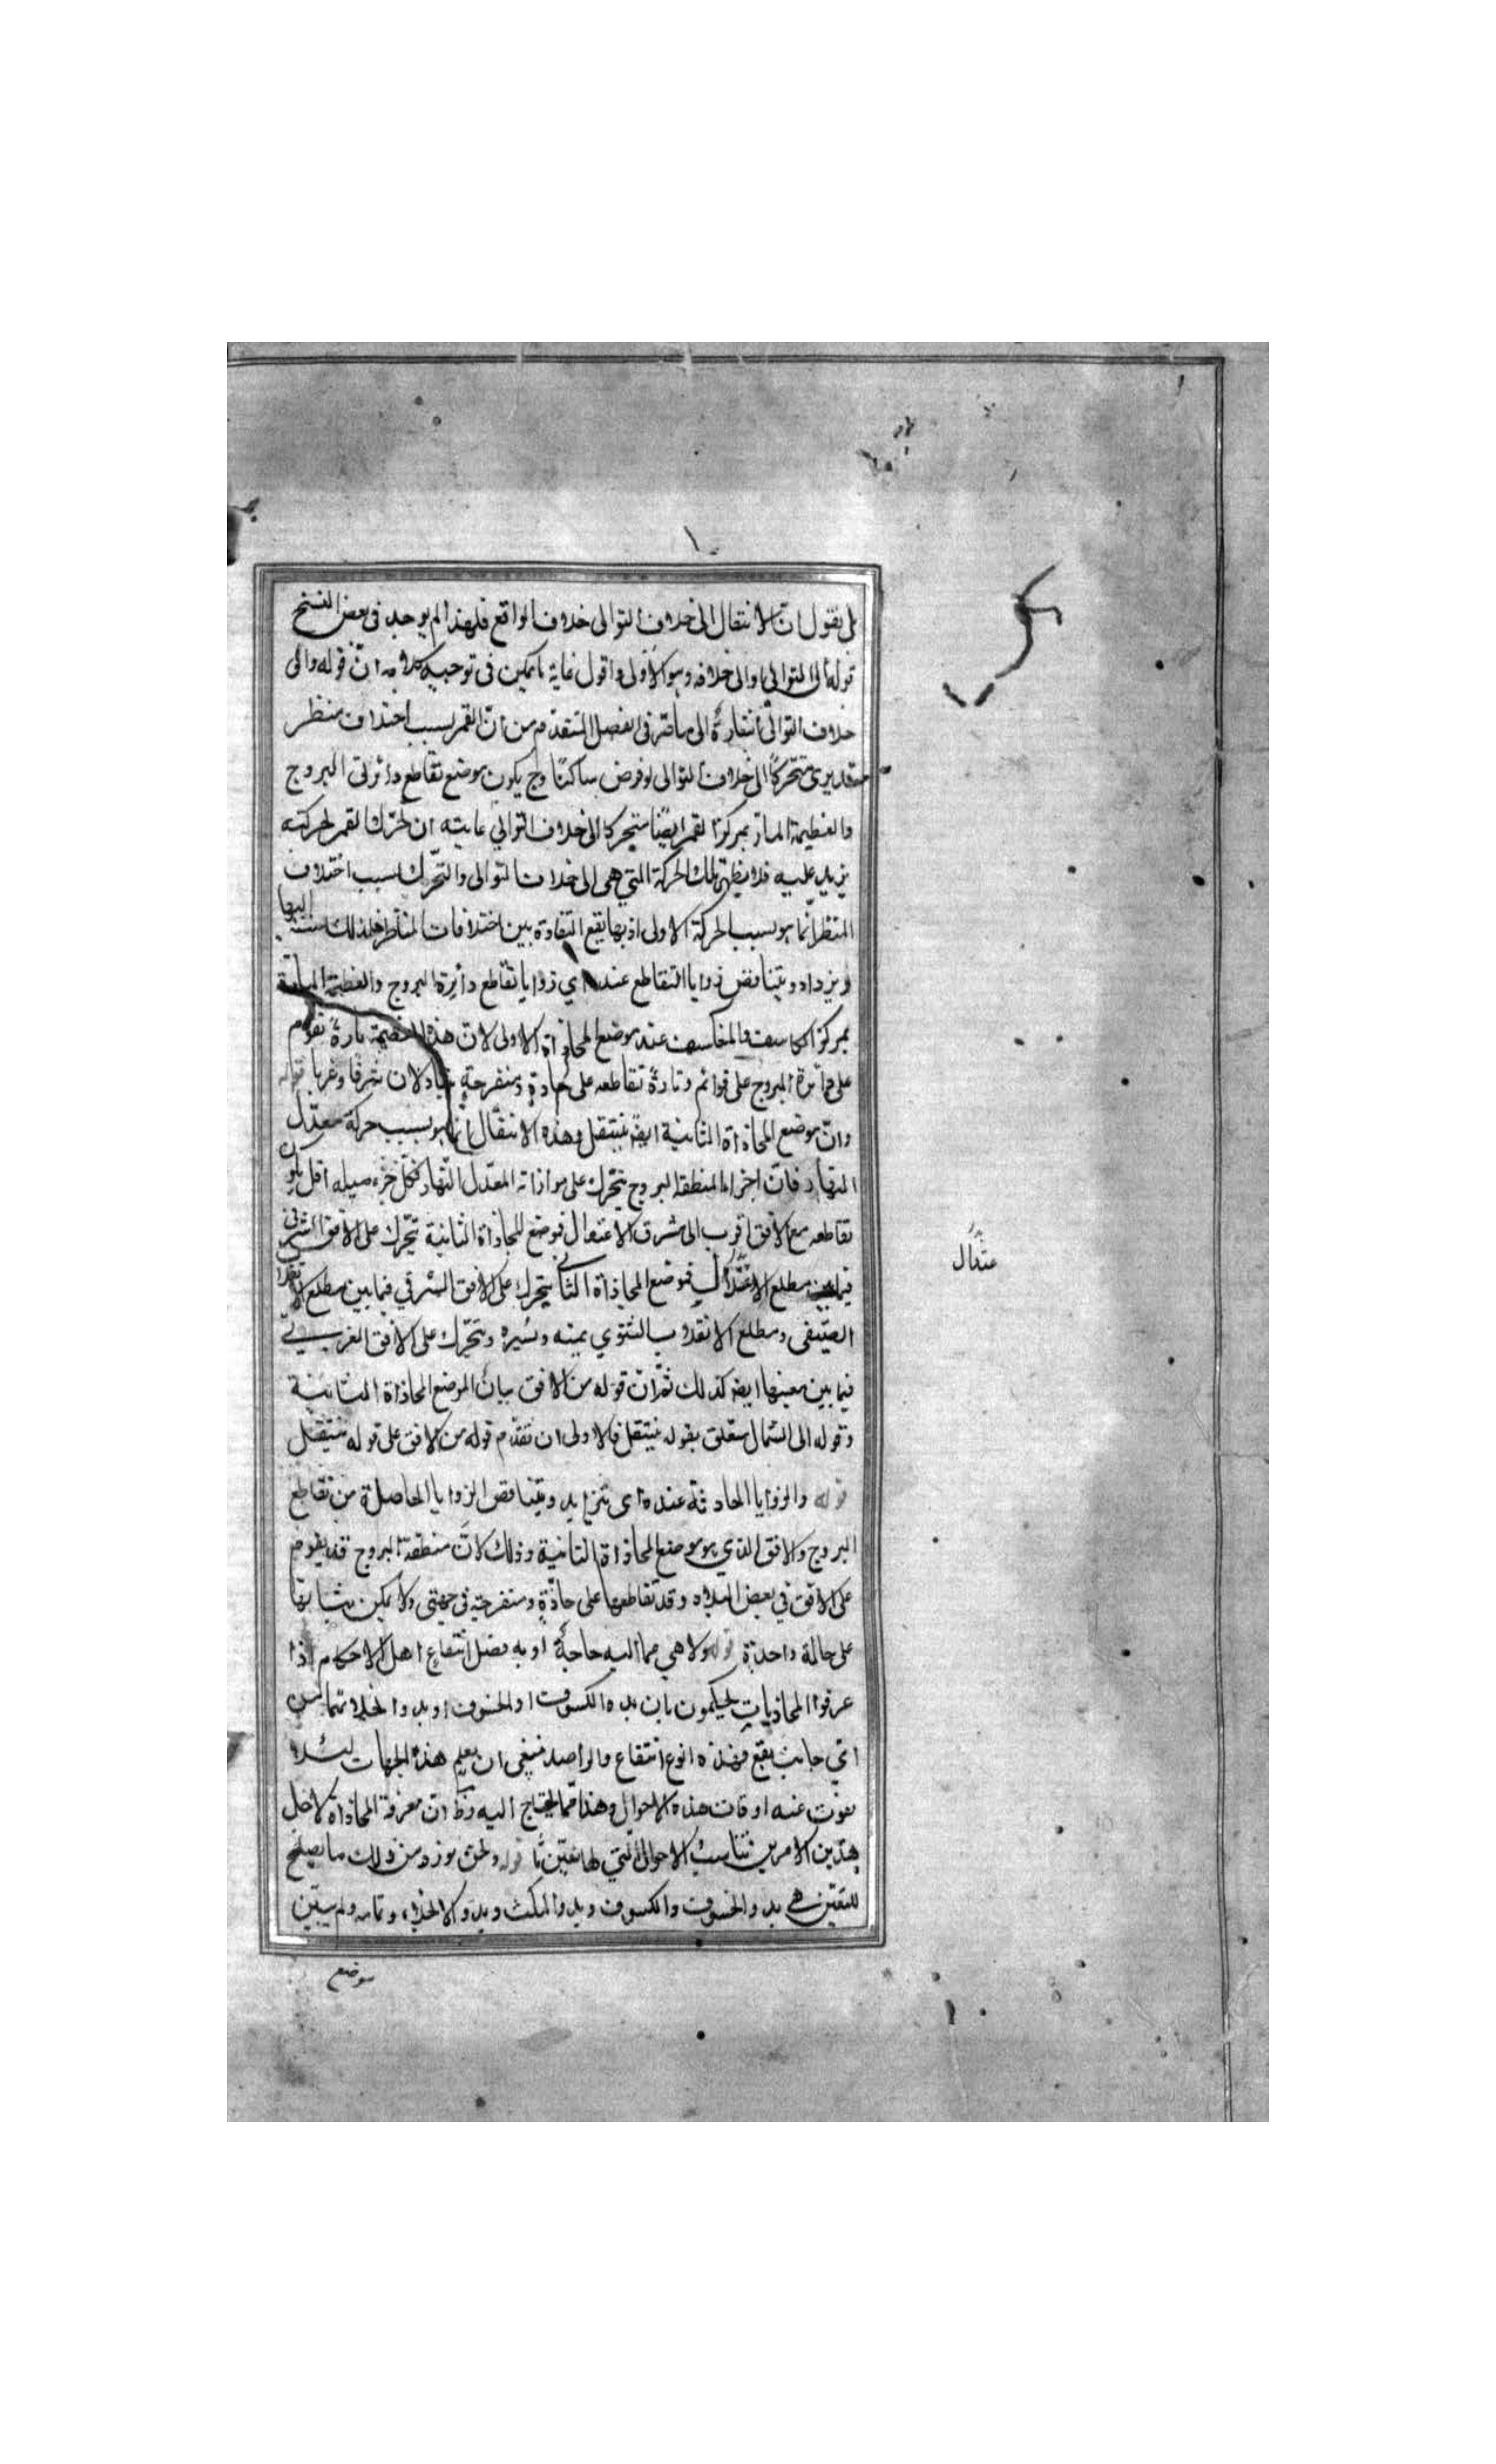 بل يقول ان الانتقال الى خلاف التوالى خلاف الواقع فلهذا لم يوجد فى بعض النسخ
قوله الى التوالى والى خلافه وهو الاولى واقول غاية ما يمكن فى توجيه كلامه انّ قوله والى
خلاف التوالى اشارة الى ما مرّ فى الفصل المتقدم من انّ القمر بسبب اختلاف منظر
قد يرى متحركاً الى خلاف التوالى لو فرض ساكنًا وح يكون موضع تقاطع دائرتى البروج
والعظيمة المارّ بمركز القمر ايضًا متحركا الى خلاف التوالي غايته ان تحرّك القمر بحركته
يزيد عليه فلا يظهر تلك الحركة التي هى الى خلاف التوالى والتحّرك بسبب اختلاف
المنظر انّما هو بسبب الحركة الاولى اذ بها يقع التفاوة بين اختلافات المناظر فلذلك اليها
ويزداد ويتناقض زوايا التقاطع عنده اي زوايا تقاطع دائرة البروج والعظيمة المارة
بمركز الكاسف والمنكسف عند موضع المحاذاة الاولى لان هذه العظيمة تارةً تقوم
على دائرة البروج على قوائم وتارةً تقاطعه على حادةٍ ومنفرجةٍ يتبادلان شرقا وغربا قوله
وانّ موضع المحاذاة الثانية ايضًا ينتقل وهذه الانتقال انّما هو بسبب حركة معدّل
النهار فانّ اجزاء المنطقة البروج يتحّرك على موازاته المعدّل النّهار فكّل جزء ميله اقل يكون
تقاطعه مع الافق اقرب الى مشرق الاعتدال فوضع المحاذاة الثانية يتحّرك على الافق الشرقى
فيما بين مطلع الاعتدال فموضع المحاذاة الثانى يتحرك على الافق الشرقي فيما بين مطلع الانقلاب
الصّيفى ومطلع الانقلاب الشتوي يمنه ويسره ويتحّرك على الافق الغربى
فيما بين مغيبها ايضه كذلك ثمّ ان قوله من الافق بيان الموضع المحاذاة الثانية
وقوله الى الشمال متعلق بقوله ينتقل فالاولى ان تقدّم قوله من الافق على قوله ينتقل
قوله والزوايا الحادثة عنده اى يتزايد ويتناقص الزوايا الحاصلة من تقاطع
البروج والافق الذي هو موضع المحاذاة الثانية وذلك لانّ منطقة البروج قد يقوم
على الافق في بعض البلاد وقد تقاطعها على حادّةٍ ومنفرجة في جهتى ولا يمكن
على حالة واحدة قوله ولا هي مما اليه حاجةً او به فضل انتفاع اهل الاحكام اذا
عرفوا المحاذيات يحكمون بان بدء الكسوف او الخسوف او بدو انجلائهما
اىّ جانب يقع فهذه نوع انتفاع والراصد ينبغى ان يعلم هذه الجهات لئلا
يفوت عنه اوقات هذه الاحوال وهذا ممّا يحتاج اليه وظ ان معرفة المحاذاة لاجل
هذين الامرين قوله ونحن نورد من ذلك ما يصلح
للتقيّن هى بدو الخسوف والكسوف وبدو المكث وبدو الانجلاء وتمامه ولم يبيّن
موضع
عتدال